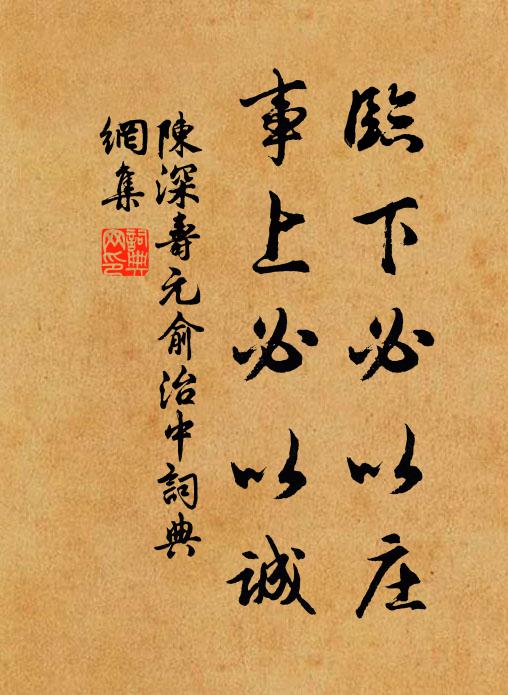 臨下必以庄
事上必以誠
陳深壽元俞治中詞典
網集
詞典
网印